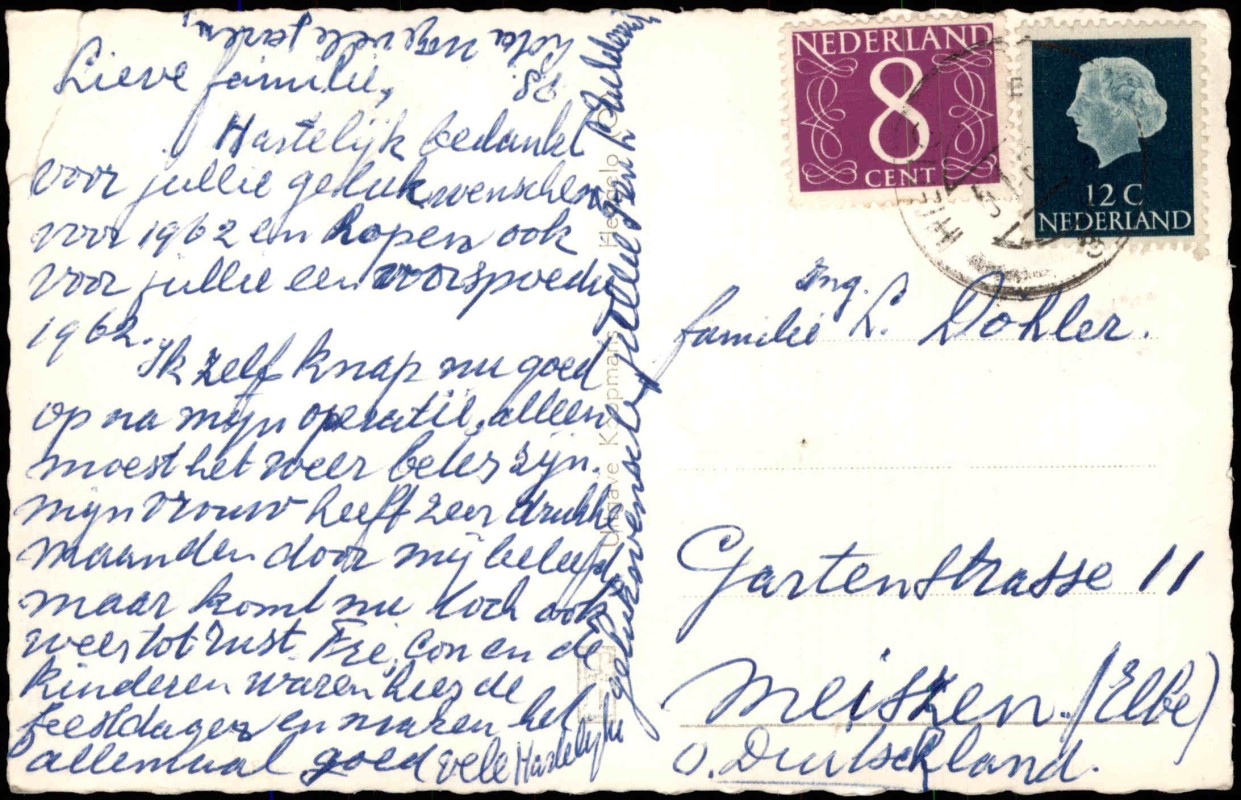 Lieve familie,
Hartelijk bedankt
voor jullie gelukwenschen
voor 1962 en hopen ook
voor jullie een voorspoedig
1962.
Ik zelf knap nu goed
op na mijn operatie, alleen
moest het weer beter zijn.
mijn vrouw heeft zeer drukke
maanden door mij beleefd
maar komt nu toch ook
weer tot rust. Fré, Con en de
kinderen waren hier de
feestdagen en maken het
allemaal goed vele Hartelijke
gelukwenschen jullie
nog vele jaren
Uitgave Hengelo
NEDERLAND
8
CENT
12 C
NEDERLAND
Ing.
familie L. Dohler.
Gartenstrasse 11
Meiszen (Elbe)
O. Deutschland.